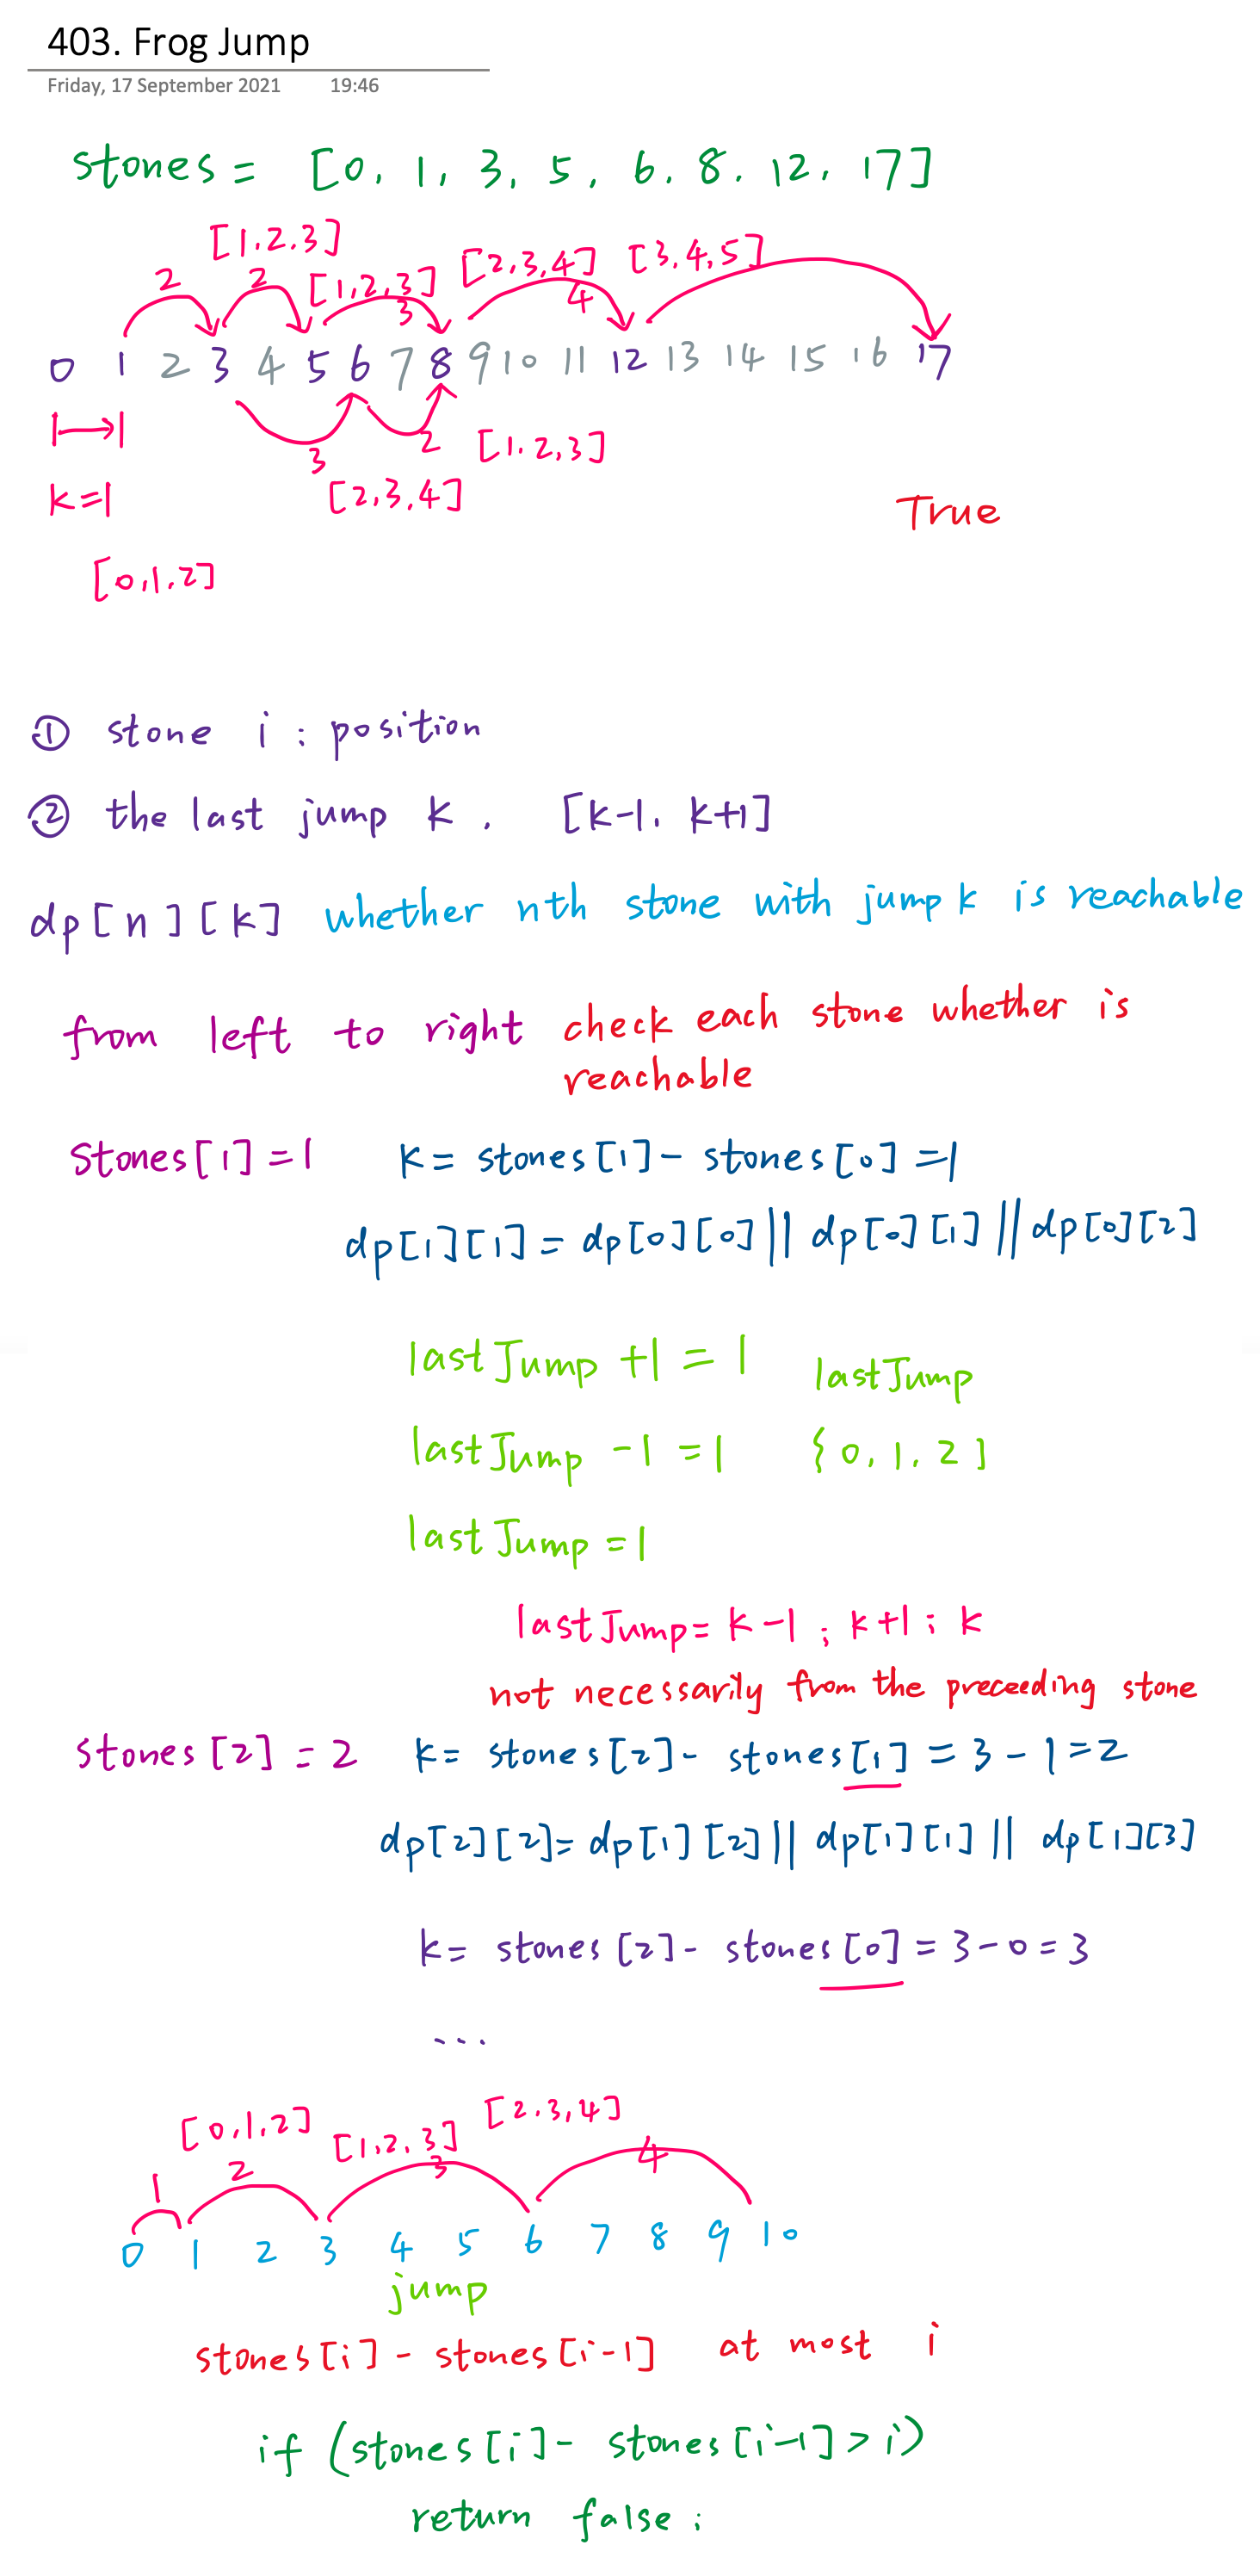 403. Frog Jump
Friday, 17 September 2021 19:46
stones = [0, 1, 3, 5, 6, 8, 12, 17]
[1,2,3]
2 2 [1,2,3] 3 [2,3,4] 4 [3,4,5]
0 1 2 3 4 5 6 7 8 9 10 11 12 13 14 15 16 17
3 2 [1,2,3]
k=1 [2,3,4] True
[0,1,2]
① stone i : position
② the last jump k. [k-1, k+1]
dp[n][k] whether nth stone with jump k is reachable
from left to right check each stone whether is
reachable
stones[1]=1 k= stones[1]- stones[0]=1
dp[1][1]= dp[0][0]|| dp[0][1]|| dp[0][2]
lastJump +1 = 1 lastJump
lastJump -1 =1 {0, 1, 2]
lastJump =1
lastJump= k-1 ; k+1 ; k
not necessarily from the preceeding stone
stones[2] = 2 k= stones[2]- stones[1] = 3-1=2
dp[2][2]= dp[1][2]|| dp[1][1]|| dp[1][3]
k= stones[2]- stones[0]= 3-0=3
...
[0,1,2] [1,2,3] [2,3,4]
1 2 3 4
0 1 2 3 4 5 6 7 8 9 10
jump
stones[i] - stones[i-1] at most i
if (stones[i]- stones[i-1] > i)
return false;